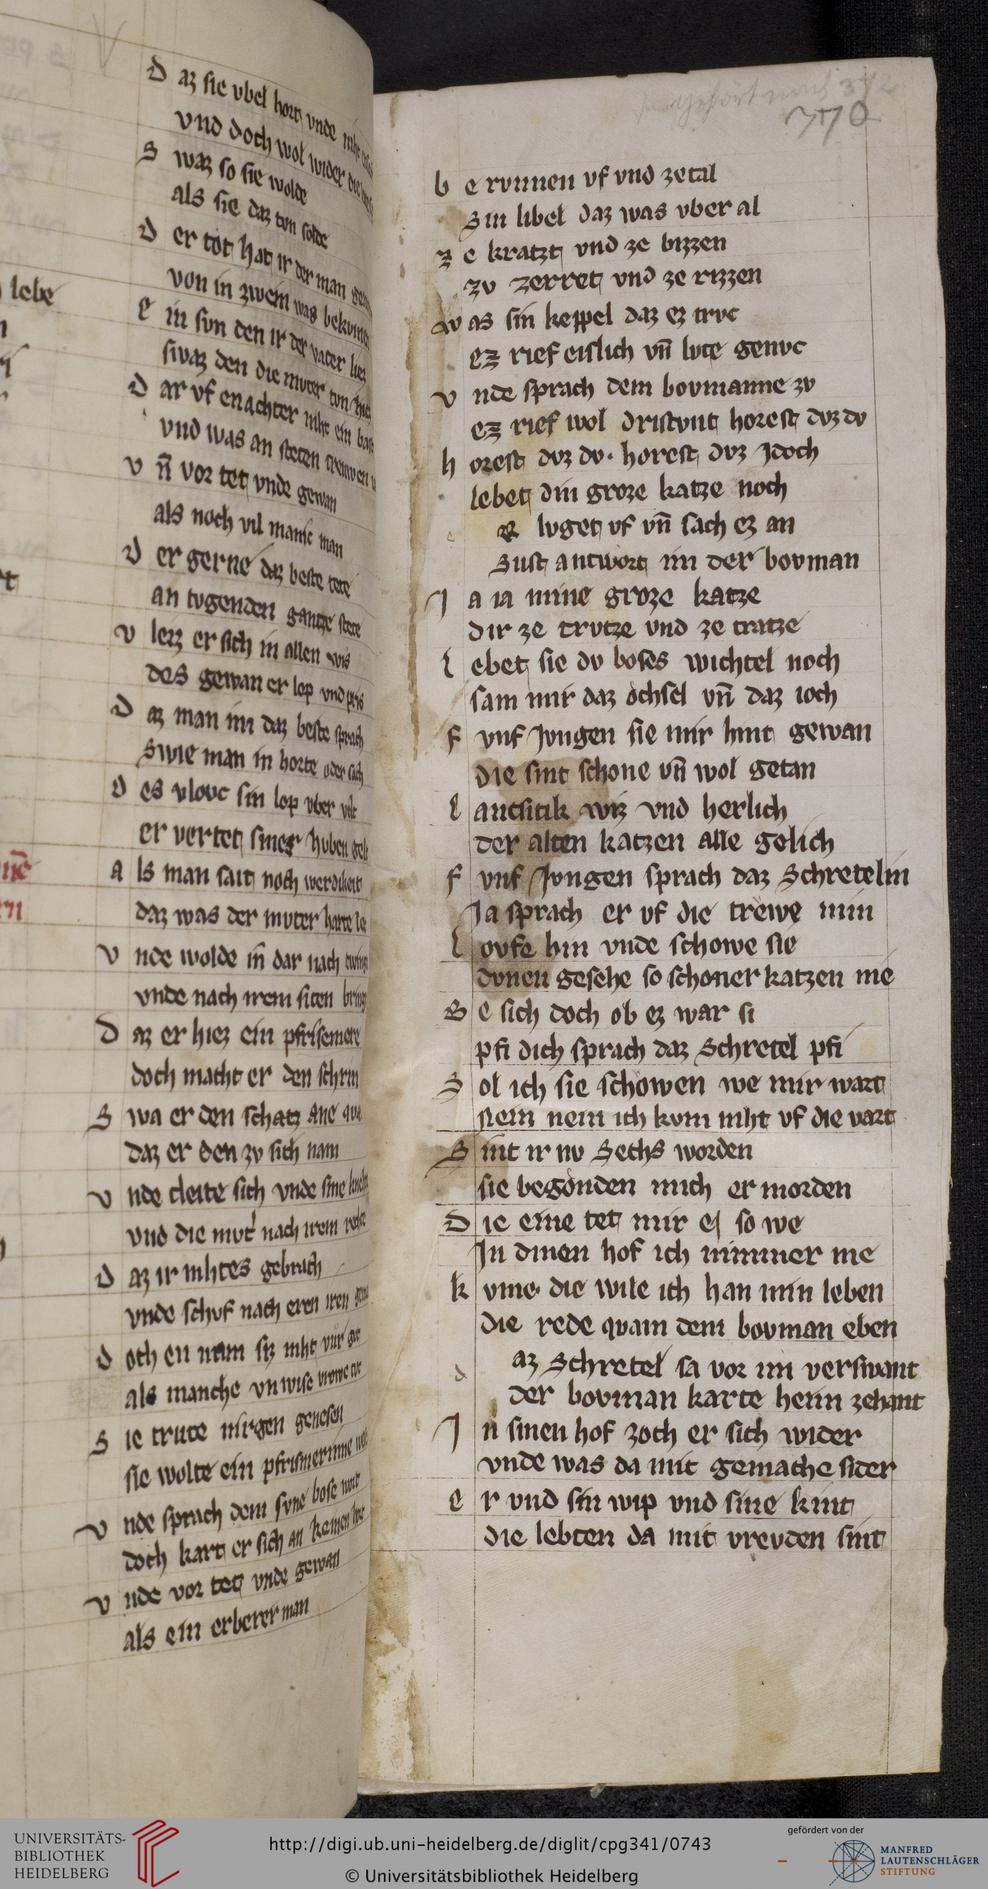 lebe
D az sie vbel hort vnde niht
vnd doch wol wider die
S waz so sie wolde
als sie daz tvn solde
D er tot hat ir der man
von in zwein was
E in svn den ir der vater liez
swaz den die mvter tvn hiez
D ar vf en achter niht ein
vnd was an steten trewen
V n̄ vor tet vnde gewan
als noch vil manic man
D er gerne daz beste tete
an tvgenden gantze stete
V leiz er sich in allen wis
des gewan er lop vnd pris
D az man im daz beste sprach
Swie man in horte oder sach
D es vlovc sin lop vber
er vertet siner hvben gelt
A ls man sait noch werdikeit
daz was der mvter harte
V nde wolde in dar nach
vnde nach irem siten
D az er hiez ein pfrisemere
doch macht er den schrin
S wa er den schatz ane
daz er den zv sich nam
V nde cleite sich vnde sine
vnd die mvt' nach irem
D az ir nihtes gebrach
vnde schvf nach eren iren
D och en nam siz niht vur
als manche vnwise vrowe
S ie trute nirgen genesen
sie wolte ein pfrisnerinne
V nde sprach dem svne bose
doch kart er sich an keinen
V nde vor tet vnde gewan
als ein erberer man
gehort nach 372
370
b e rvnnen vf vnd zetal
Sin libel daz was vber al
z e kratzt vnd ze bizzen
zv zerret vnd ze rizzen
w as sin keppel daz ez trvc
ez rief eislich vn̄ lvte genvc
v nde sprach dem bovmanne zv
ez rief wol dristvnt horest dvz dv
h orest dvz dv · horest dvz Jdoch
lebet din groze katze noch
e R lvget vf vn̄ sach ez an
Sust antwort im der bovman
J a ia mine groze katze
dir ze trvtze vnd ze tratze
l ebet sie dv boses wichtel noch
sam mir daz ochsel vn̄ daz ioch
f vnf Jvngen sie mir hint gewan
die sint schone vn̄ wol getan
l antsitik wiz vnd herlich
der alten katzen alle gelich
f vnf Jvngen sprach daz Schretelin
Ja sprach er vf die trewe min
l ovfe hin vnde schowe sie
dvnen gesehe so schoner katzen nie
B e sich doch ob ez war si
pfi dich sprach daz Schretel pfi
S ol ich sie schowen we mir wart
Nein nein ich kvm niht vf die vart
S int ir nv Sechs worden
sie begonden mich er morden
D ie eine tet mir ej so we
Jn dinen hof ich nimmer me
k vme· die wile ich han min leben
die rede qvam dem bovman eben
d az Schretel sa vor im verswant
der bovman karte heim zehant
J n sinen hof zoch er sich wider
vnde was da mit gemache sider
E r vnd sin wip vnd sine kint
die lebten da mit vrevden sint
UNIVERSITÄTS-
BIBLIOTHEK
HEIDELBERG
http://digi.ub.uni-heidelberg.de/diglit/cpg341/0743
© Universitätsbibliothek Heidelberg
gefördert von der
MANFRED
LAUTENSCHLÄGER
STIFTUNG